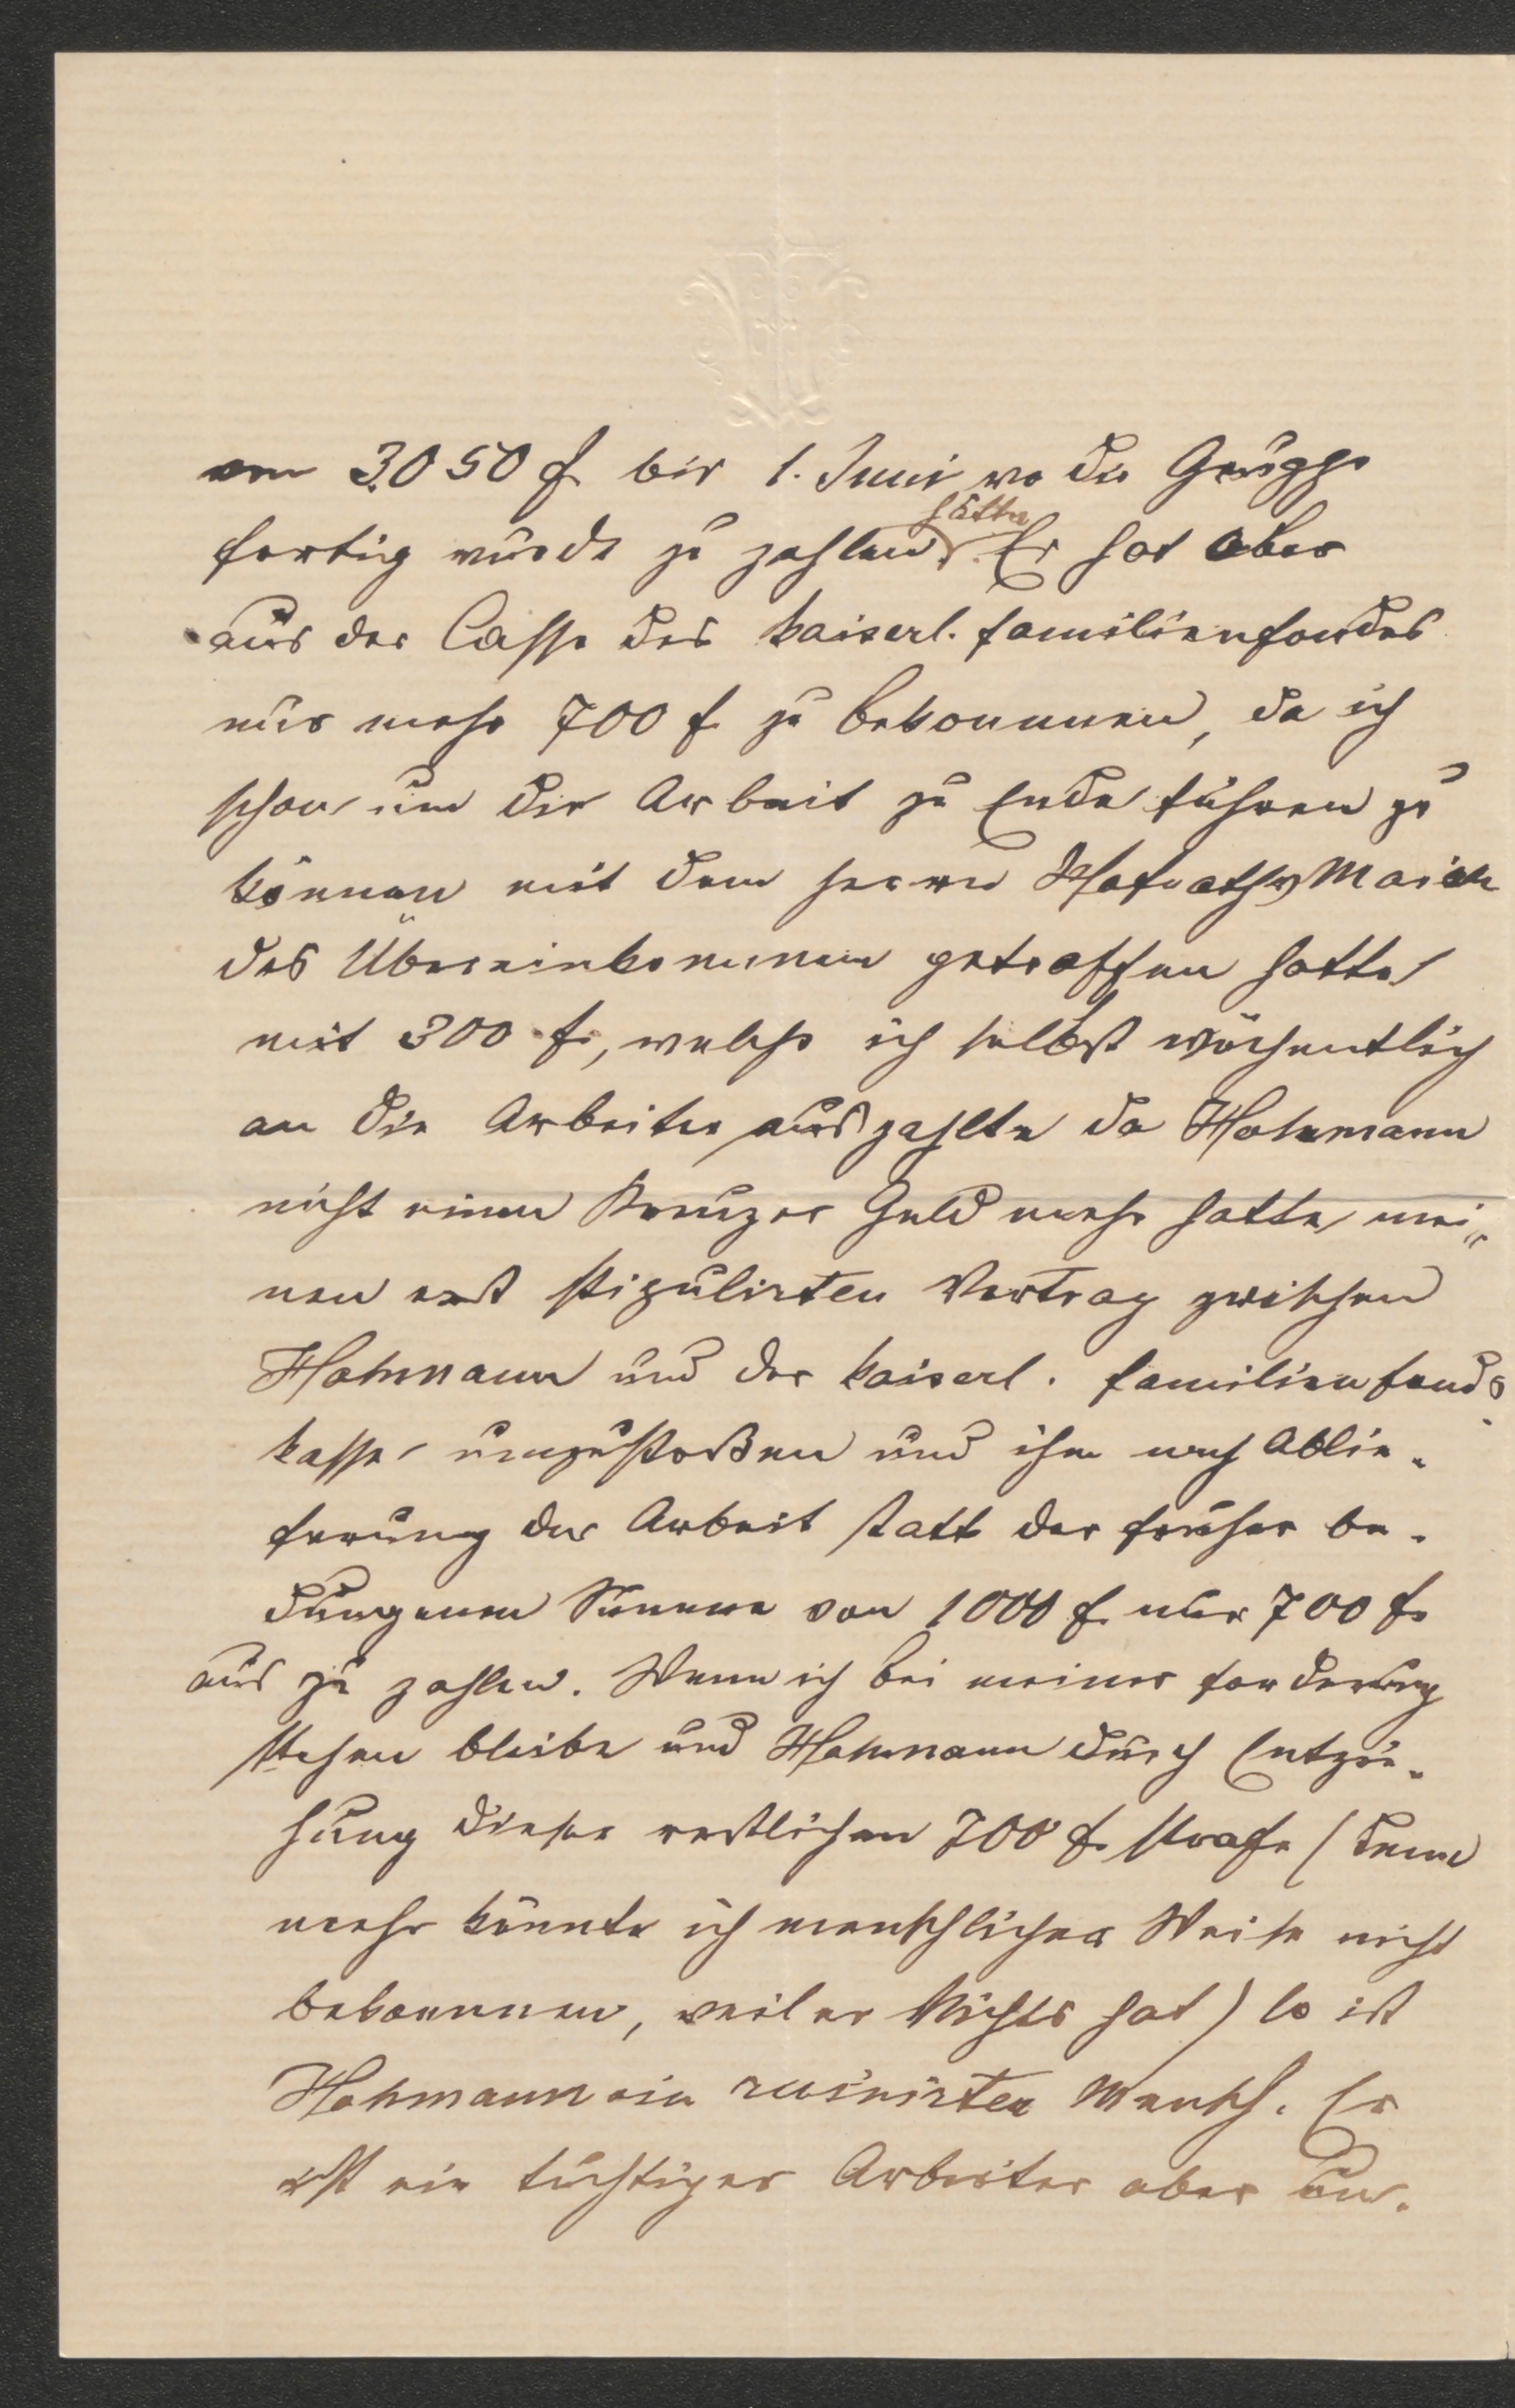 von 3050 f. bis 1. Juni wo die Gruppe
fertig wurde zu zahlen hätte. Er hat aber
aus der Casse des kaiserl. Familienfondes
nur mehr 700 f. zu bekommen, da ich
schon um die Arbeit zu Ende führen zu
können mit dem Herrn Hofrath
das Übereinkommen getroffen hatte
mit 300 f., welche ich selbst wöchentlich
an die Arbeiter auszahlte da Hohmann
nicht einen Kreuzer Geld mehr hatte, mei„
nen erst stipulirten Vertrag zwischen
Hohmann und der kaiserl. Familienfonds
kasse umzustoßen und ihm nach Ablie-
ferung der Arbeit statt der früher be-
dungenen Summe von 1000 f. nur 700 f.
aus zu zahlen. Wenn ich bei meiner Forderung
stehen bleibe und Hohmann durch Entzie-
hung dieser restlichen 700 f. strafe (denn
mehr könnte ich menschlicher Weise nicht
bekommen, weil er Nichts hat) so ist
Hohmann ein ruinirter Mensch. Er
ist ein tüchtiger Arbeiter aber un-